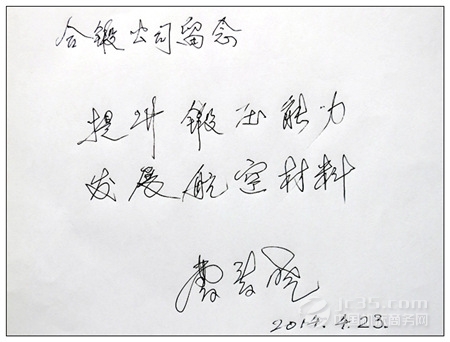 合锻公司留念
提升锻压能力
发展航空材料
2014.4.23.
jc35.com